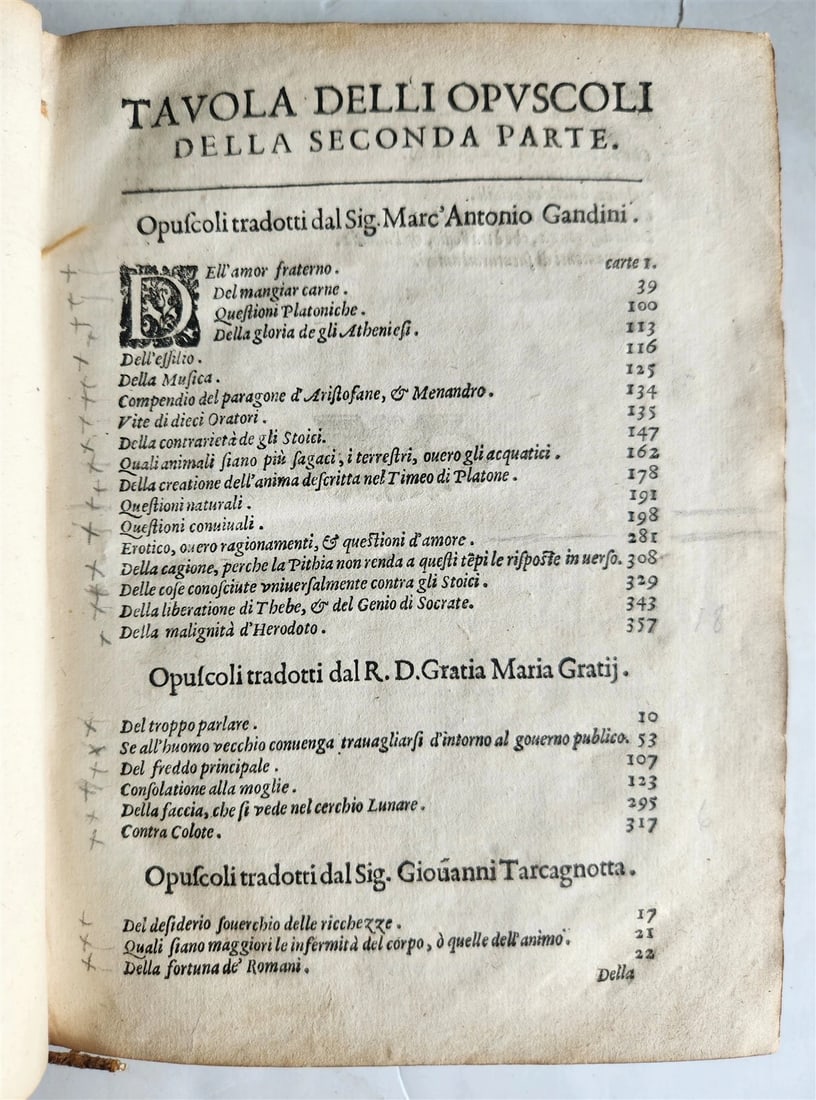 TAVOLA DELLI OPVSCOLI
DELLA SECONDA PARTE.
Opuſcoli tradotti dal Sig. Marc'Antonio Gandini.
DEll'amor fraterno. carte 1.
Del mangiar carne. 39
Queſtioni Platoniche. 100
Della gloria de gli Athenieſi. 113
Dell'eſſilio. 116
Della Muſica. 125
Compendio del paragone d'Ariſtofane, & Menandro. 134
Vite di dieci Oratori. 135
Della contrarietà de gli Stoici. 147
Quali animali ſiano più ſagaci, i terreſtri, ouero gli acquatici. 162
Della creatione dell'anima deſcritta nel Timeo di Platone. 178
Queſtioni naturali. 191
Queſtioni conuiuali. 198
Erotico, ouero ragionamenti, & queſtioni d'amore. 281
Della cagione, perche la Pithia non renda a queſti tẽpi le riſpoſte in uerſo. 308
Delle coſe conoſciute vniuerſalmente contra gli Stoici. 329
Della liberatione di Thebe, & del Genio di Socrate. 343
Della malignità d'Herodoto. 357
Opuſcoli tradotti dal R. D. Gratia Maria Gratij.
Del troppo parlare. 10
Se all'huomo vecchio conuenga trauagliarſi d'intorno al gouerno publico. 53
Del freddo principale. 107
Conſolatione alla moglie. 123
Della faccia, che ſi vede nel cerchio Lunare. 295
Contra Colote. 317
Opuſcoli tradotti dal Sig. Gioũanni Tarcagnotta.
Del deſiderio ſouerchio delle ricchezze. 17
Quali ſiano maggiori le infermità del corpo, ò quelle dell'animo. 21
Della fortuna de' Romani. 22
Della